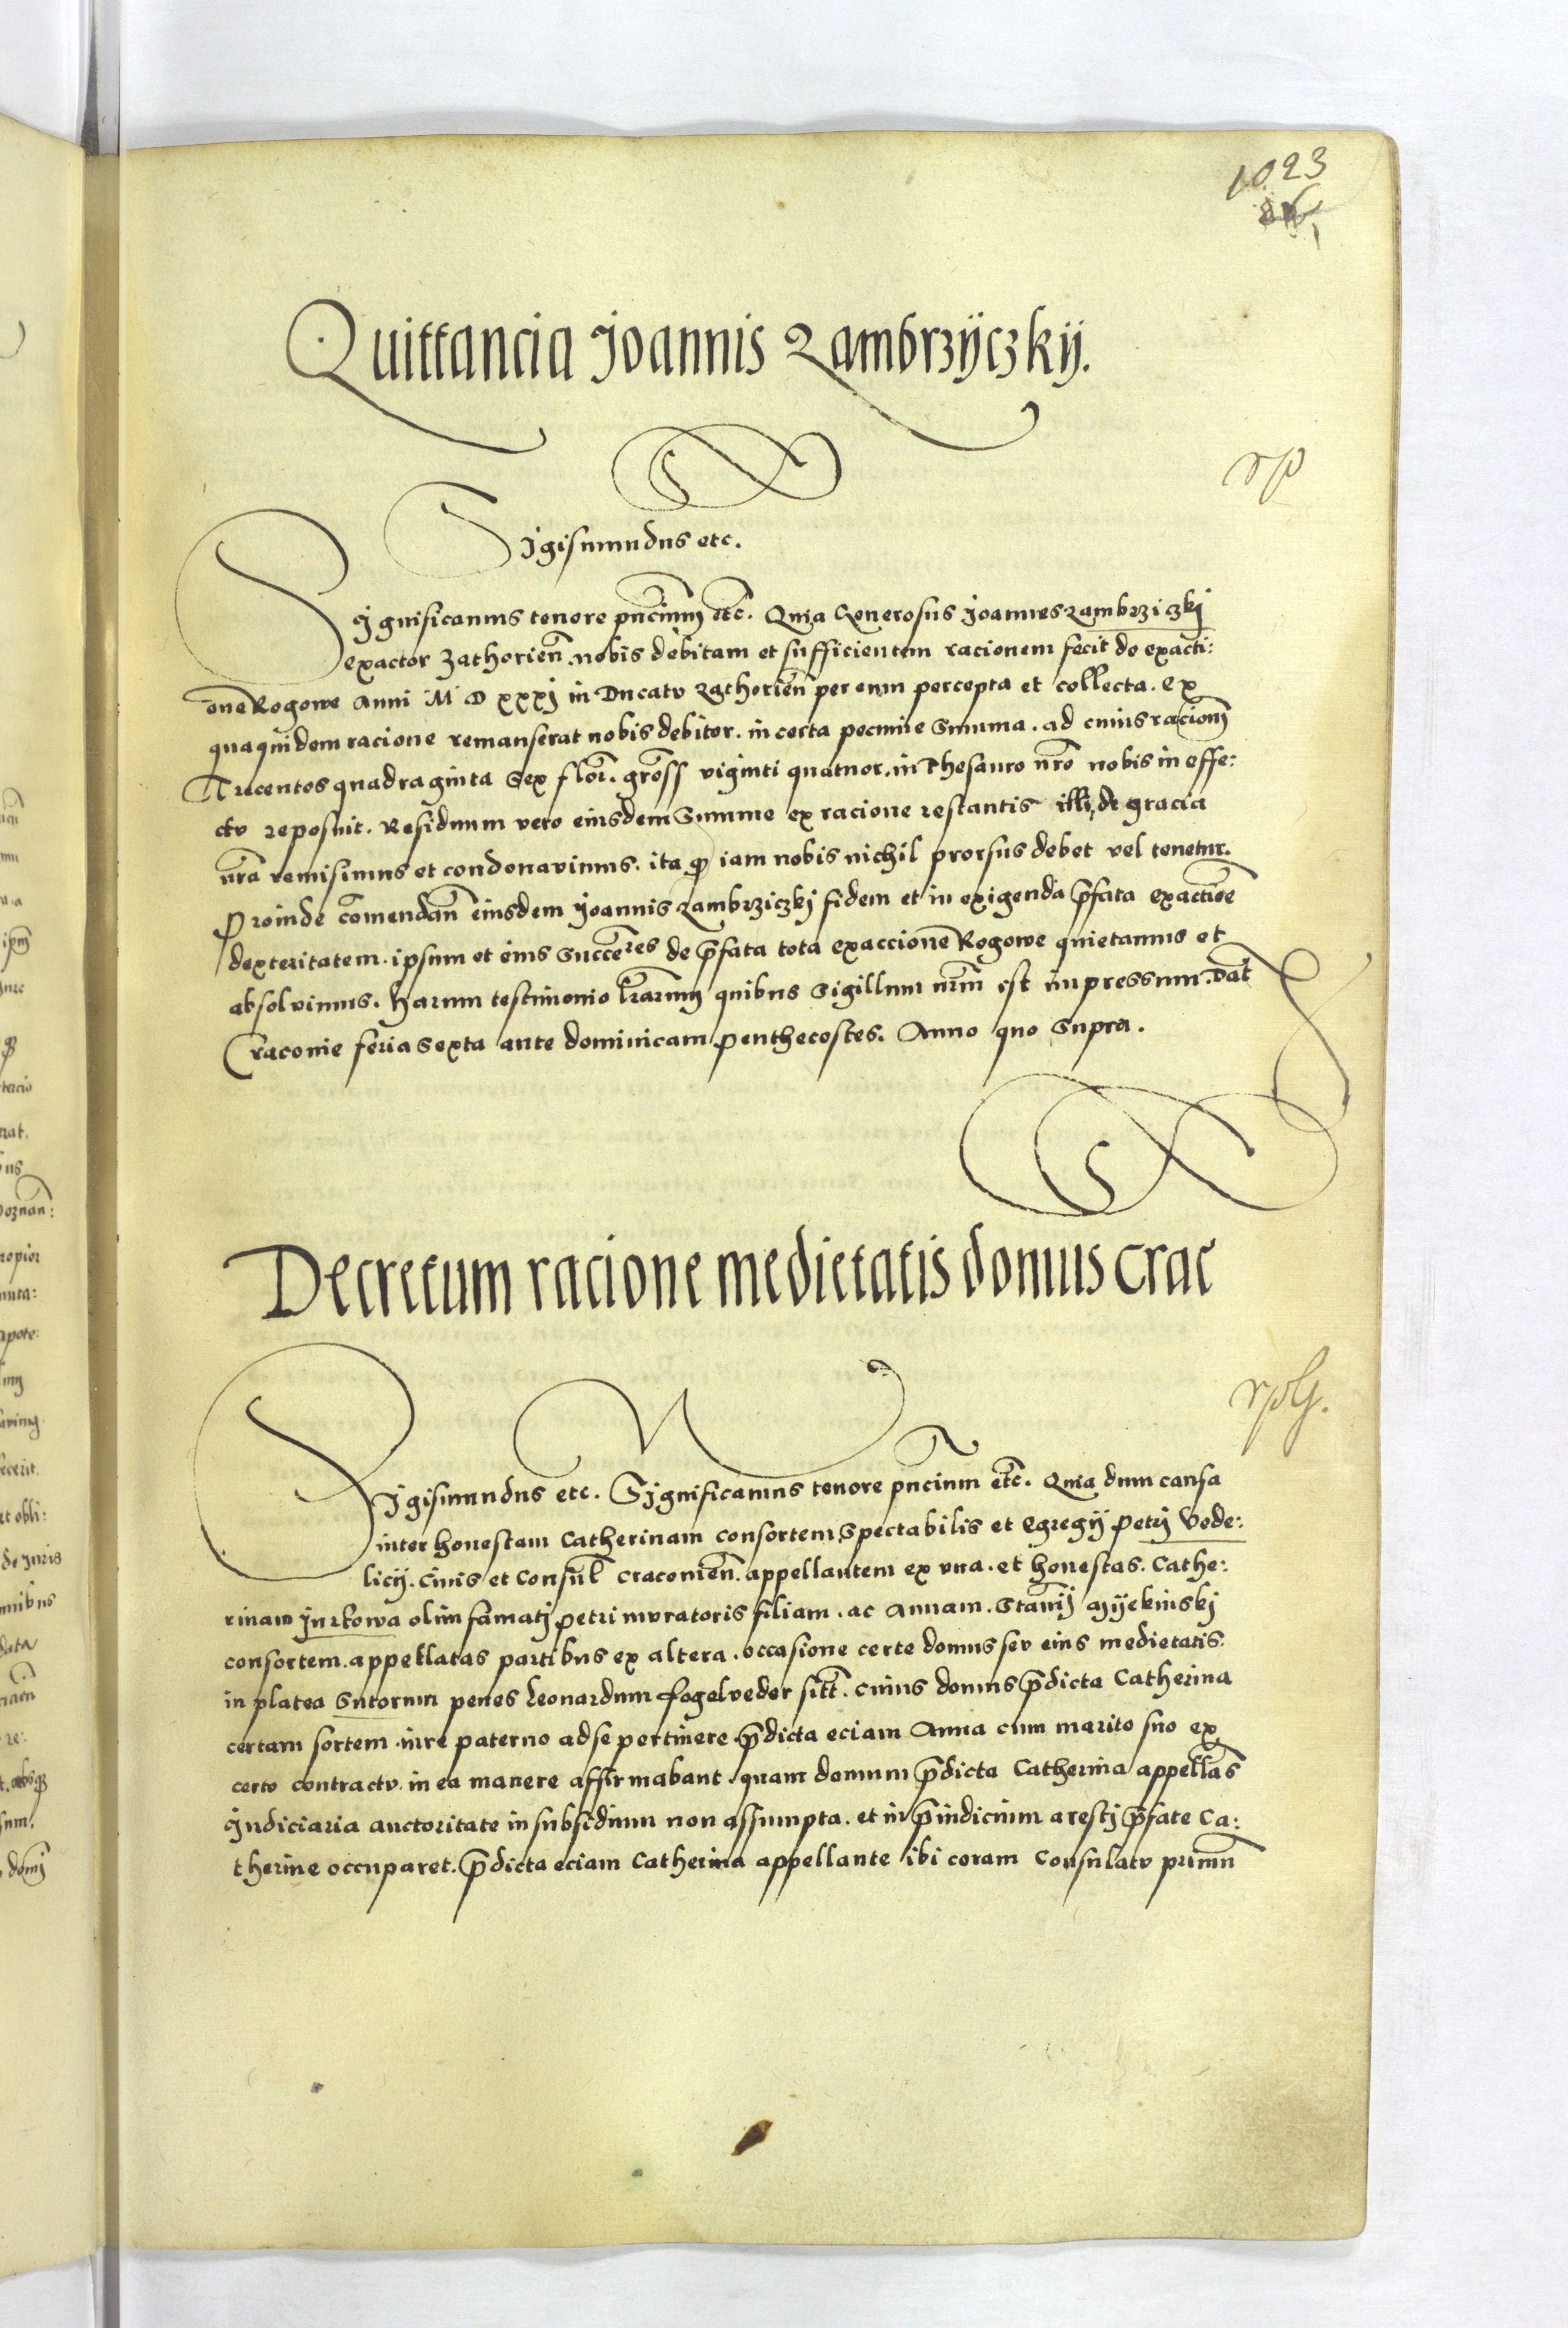 1023
Quittancia Joannis Zambrzyczkij.
rp
Sigismundus etc.
Significamus tenore pñcium etc̃. Quia Generosus Joannes Zambrziczkj
exactor Zathorieñ. nobis debitam et sufficientem racionem fecit de exacti:
one Rogowe Anni M D xxxj in Ducatu Zathorieñ per eum percepta et collecta. Ex
quaquidem racione remanserat nobis debitor. in certa pecunie Summa. ad cuius racionem
Trecentos quadraginta Sex floř. gross viginti quatuor. in Thesauro nřo nobis in effe:
ctu reposuit. Residuum vero eiusdem Summe ex racione restantis illi de gracia
nřa remisimus et condonavimus. ita q̃ iam nobis nichil prorsus debet vel tenetur.
Proinde cõmendañ eiusdem Joannis Zambrziczkj fidem et in exigenda p̃fata exactiõe
dexteritatem. ipsum et eius Succẽres de p̃fata tota exaccione Rogowe quietamus et
absolvimus. Harum testimonio l̃rarum quibus Sigillum nřm est impressum. Dat̃
Cracovie feria Sexta ante dominicam Penthecostes. Anno quo Supra.
Decretum racione medietatis domus Crac̃
rplg.
Sigismundus etc. Significamus tenore pñcium etc̃. Quia dum causa
inter honestam Catherinam consortem Spectabilis et Egregij Petrj Vede:
licij. Civis et Consul̃ Cracovieñ. appellantem ex vna. et honestas. Cathe:
rinam Jurkowa olim famatj Petri muratoris filiam. ac Annam. Stañij Myekinskj
consortem. appellatas partibus ex altera. occasione certe domus seu eius medietatis
in platea Sutorum penes Leonardum Fogelveder sitt̃. cuius domus p̃dicta Catherina
certam sortem iure paterno ad se pertinere. p̃dicta eciam Anna cum marito suo ex
certo contractu. in ea manere affirmabant. quam domum p̃dicta Catherina appellãs
Judiciaria auctoritate in subsidium non assumpta. et in p̃iudicium arestj p̃fate Ca:
therine occuparet. p̃dicta eciam Catherina appellante ibi coram Consulatu primũ